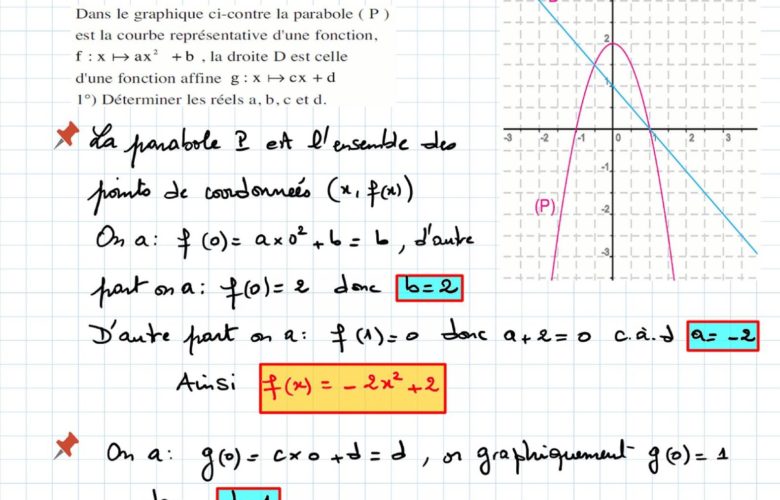 Dans le graphique ci-contre la parabole ( P )
est la courbe représentative d'une fonction,
f : x ↦ ax² + b , la droite D est celle
d'une fonction affine g : x ↦ cx + d
1°) Déterminer les réels a, b, c et d.
2
1
-3 -2 -1 0 1 2 3
-1
(P) -2
-3
La parabole P est l'ensemble des
points de coordonnées (x, f(x))
On a: f(0) = a×0² + b = b, d'autre
part on a: f(0) = 2 donc b = 2
D'autre part on a: f(1) = 0 donc a+2 = 0 c.à.d a = -2
Ainsi f(x) = -2x² + 2
On a: g(0) = c×0 + d = d, or graphiquement g(0) = 1